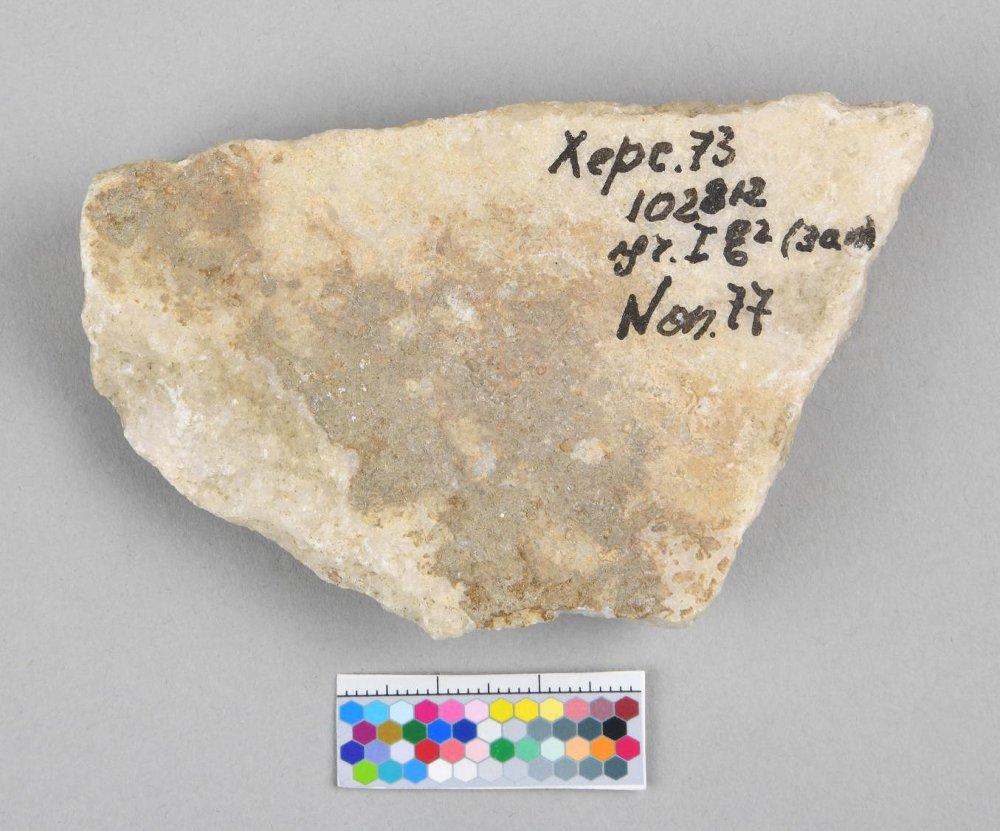 Херс.73
102812
I б² (зап
Nоп.77